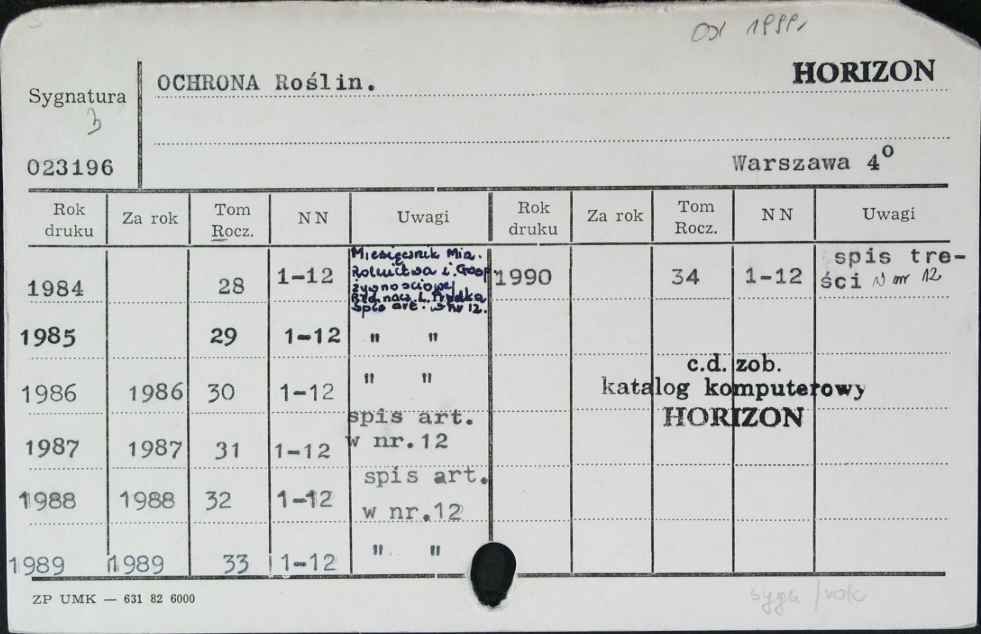 1999.
HORIZON
OCHRONA Roślin.
Sygnatura
023196
Warszawa 4°
Rok druku Za rok Tom Rocz. NN Uwagi Rok druku Za rok Tom Rocz. NN Uwagi
1984 28 1-12 Miesięcznik Min.
Rolnictwa i Gosp
żywnościowej
spis art. w nr 12.
1990 34 1-12 spis tre-
ści w nr 12
1985 29 1-12 " "
1986 1986 30 1-12 " "
1987 1987 31 1-12 spis art.
w nr.12
1988 1988 32 1-12 spis art.
w nr.12
1989 1989 33 1-12 " "
c.d. zob.
katalog komputerowy
HORIZON
ZP UMK — 631 82 6000